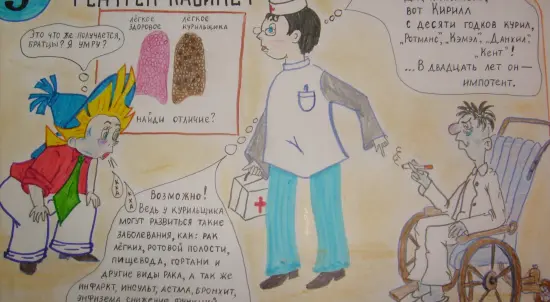 РЕНТГЕН КАБИНЕТ
ЭТО ЧТО ЖЕ ПОЛУЧАЕТСЯ,
БРАТЦЫ? Я УМРУ?
ЛЁГКОЕ ЗДОРОВОЕ
ЛЕГКОЕ КУРИЛЬЩИКА
НАЙДИ ОТЛИЧИЕ?
ВОТ КИРИЛЛ
С ДЕСЯТИ ГОДКОВ КУРИЛ,
„РОТМАНС", „КЭМЭЛ", „ДАНХИЛ",
„КЕНТ"!
...В ДВАДЦАТЬ ЛЕТ ОН—
ИМПОТЕНТ.
КХА
КХА
ВОЗМОЖНО!
ВЕДЬ У КУРИЛЬЩИКА
МОГУТ РАЗВИТЬСЯ ТАКИЕ
ЗАБОЛЕВАНИЯ, КАК: РАК
ЛЁГКИХ, РОТОВОЙ ПОЛОСТИ,
ПИЩЕВОДА, ГОРТАНИ И
ДРУГИЕ ВИДЫ РАКА, А ТАК ЖЕ
ИНФАРКТ, ИНСУЛЬТ, АСТМА, БРОНХИТ,
ЭМФИЗЕМА СНИЖЕНИЕ